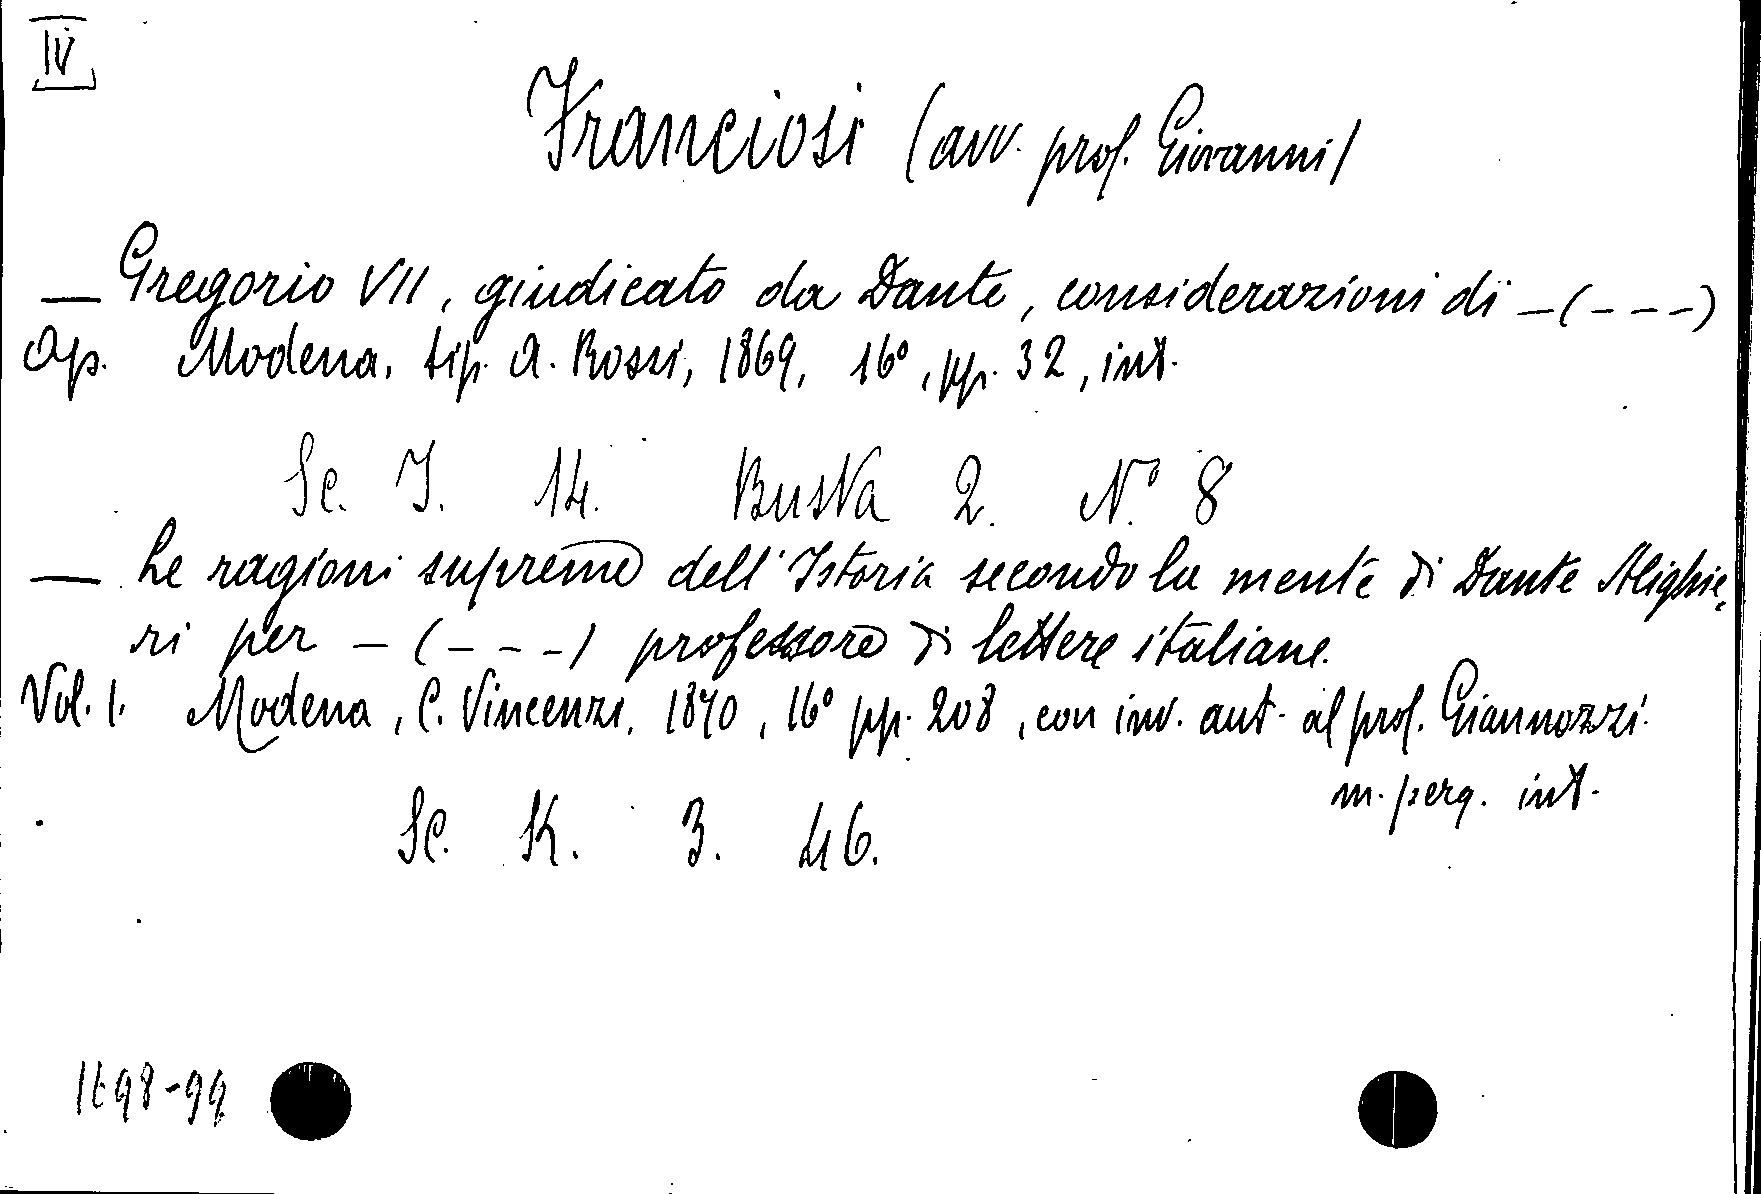 IV
Franciosi (avv. prof. Giovanni)
— Gregorio VII, giudicato da Dante, considerazioni di — (- - -)
Op. Modena, tip. A. Rossi, 1869, 16°, pp. 32, int.
Sc. I. 14. Busta 2. N.° 8
— Le ragioni supreme dell'Istoria secondo la mente di Dante Alighie,
ri per — (- - -) professore di lettere italiane.
Vol. 1. Modena, C. Vincenzi, 1870, 16° pp. 208, con inv. aut. al prof. Giannozzi.
m. perg. int.
Sc. K. 3. 46.